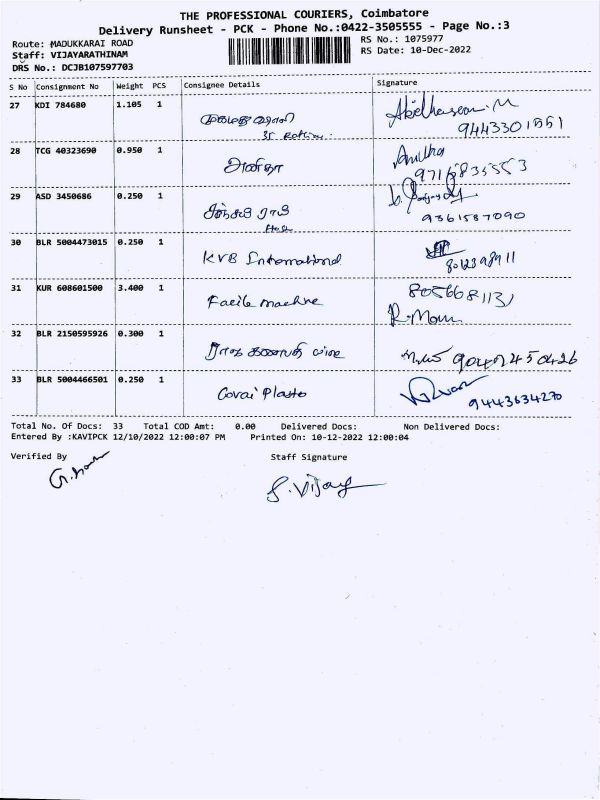 THE PROFESSIONAL COURIERS, Coimbatore
Delivery Runsheet - PCK - Phone No.:0422-3505555 - Page No.:3
Route: MADUKKARAI ROAD
RS No.: 1075977
Staff: VIJAYARATHINAM
RS Date: 10-Dec-2022
DRS No.: DCJB107597703
S No Consignment No Weight PCS Consignee Details Signature
27 KDI 784680 1.105 1
9443301551
28 TCG 40323690 0.950 1 அனிதா Anitha
29 ASD 3450686 0.250 1
9361587090
30 BLR 5004473015 0.250 1 KVB International
31 KUR 608601500 3.400 1 Facile machine
8056681131
32 BLR 2150595926 0.300 1 ராஜ கணபதி 9042450426
33 BLR 5004466501 0.250 1 Covai Plasto
9443634270
Total No. Of Docs: 33 Total COD Amt: 0.00 Delivered Docs: Non Delivered Docs:
Entered By :KAVIPCK 12/10/2022 12:00:07 PM Printed On: 10-12-2022 12:00:04
Verified By Staff Signature
S. Vijay